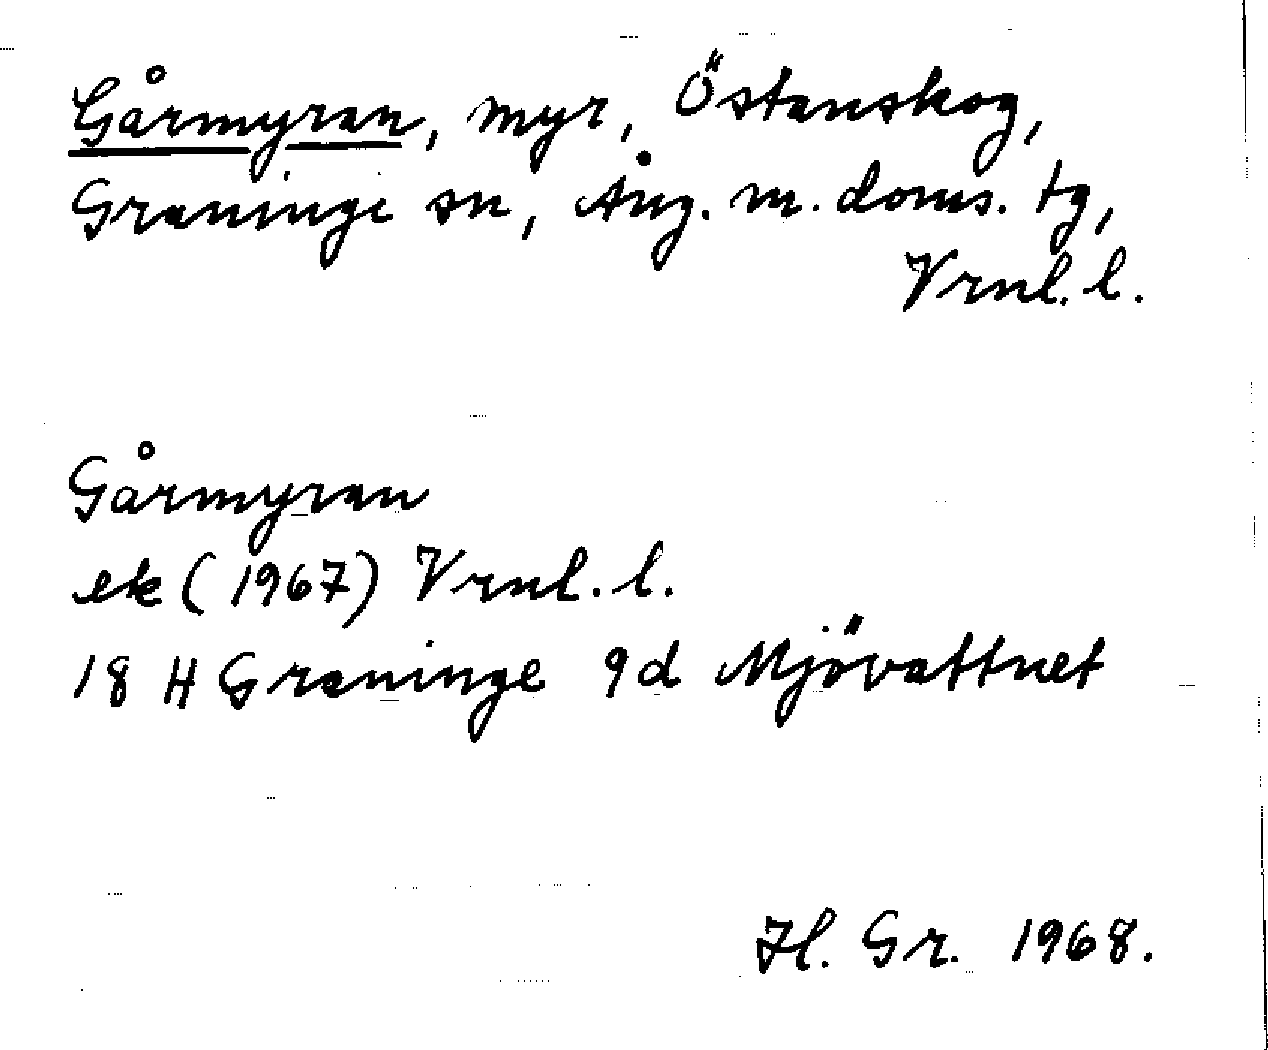 Gårmyran, myr, Östanskog,
Graninge sn, Ång. m. doms. tg,
Vrnl. l.
Gårmyran
ek (1967) Vrnl. l.
18 H Graninge 9d Mjövattnet
Hl. Gr. 1968.